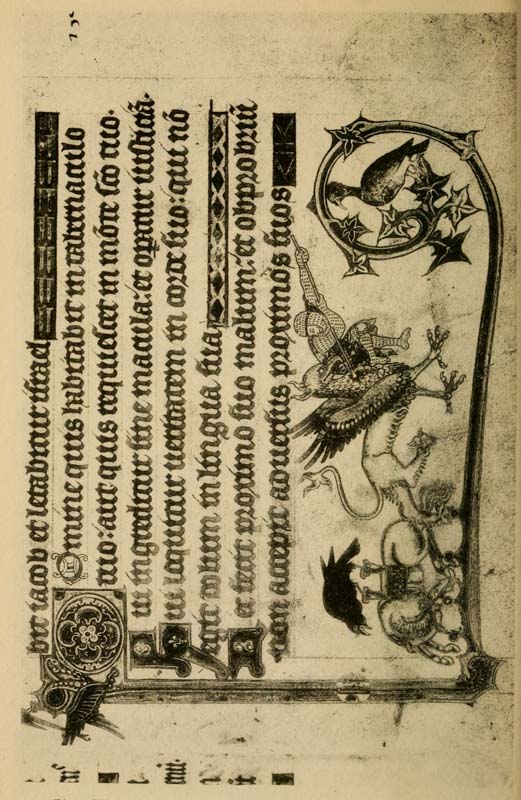 bit iacob et letabitur israel
Domine quis habitabit in tabernaculo
tuo: aut quis requiescet in mōte sc̄o tuo.
Qui ingreditur sine macula: et oꝑatur iusticiā.
Qui loquitur ueritatem in corde suo: qui nō
egit dolum in lingua sua
Nec fecit proximo suo malum: et obprobriū
non accepit aduersus proximos suos